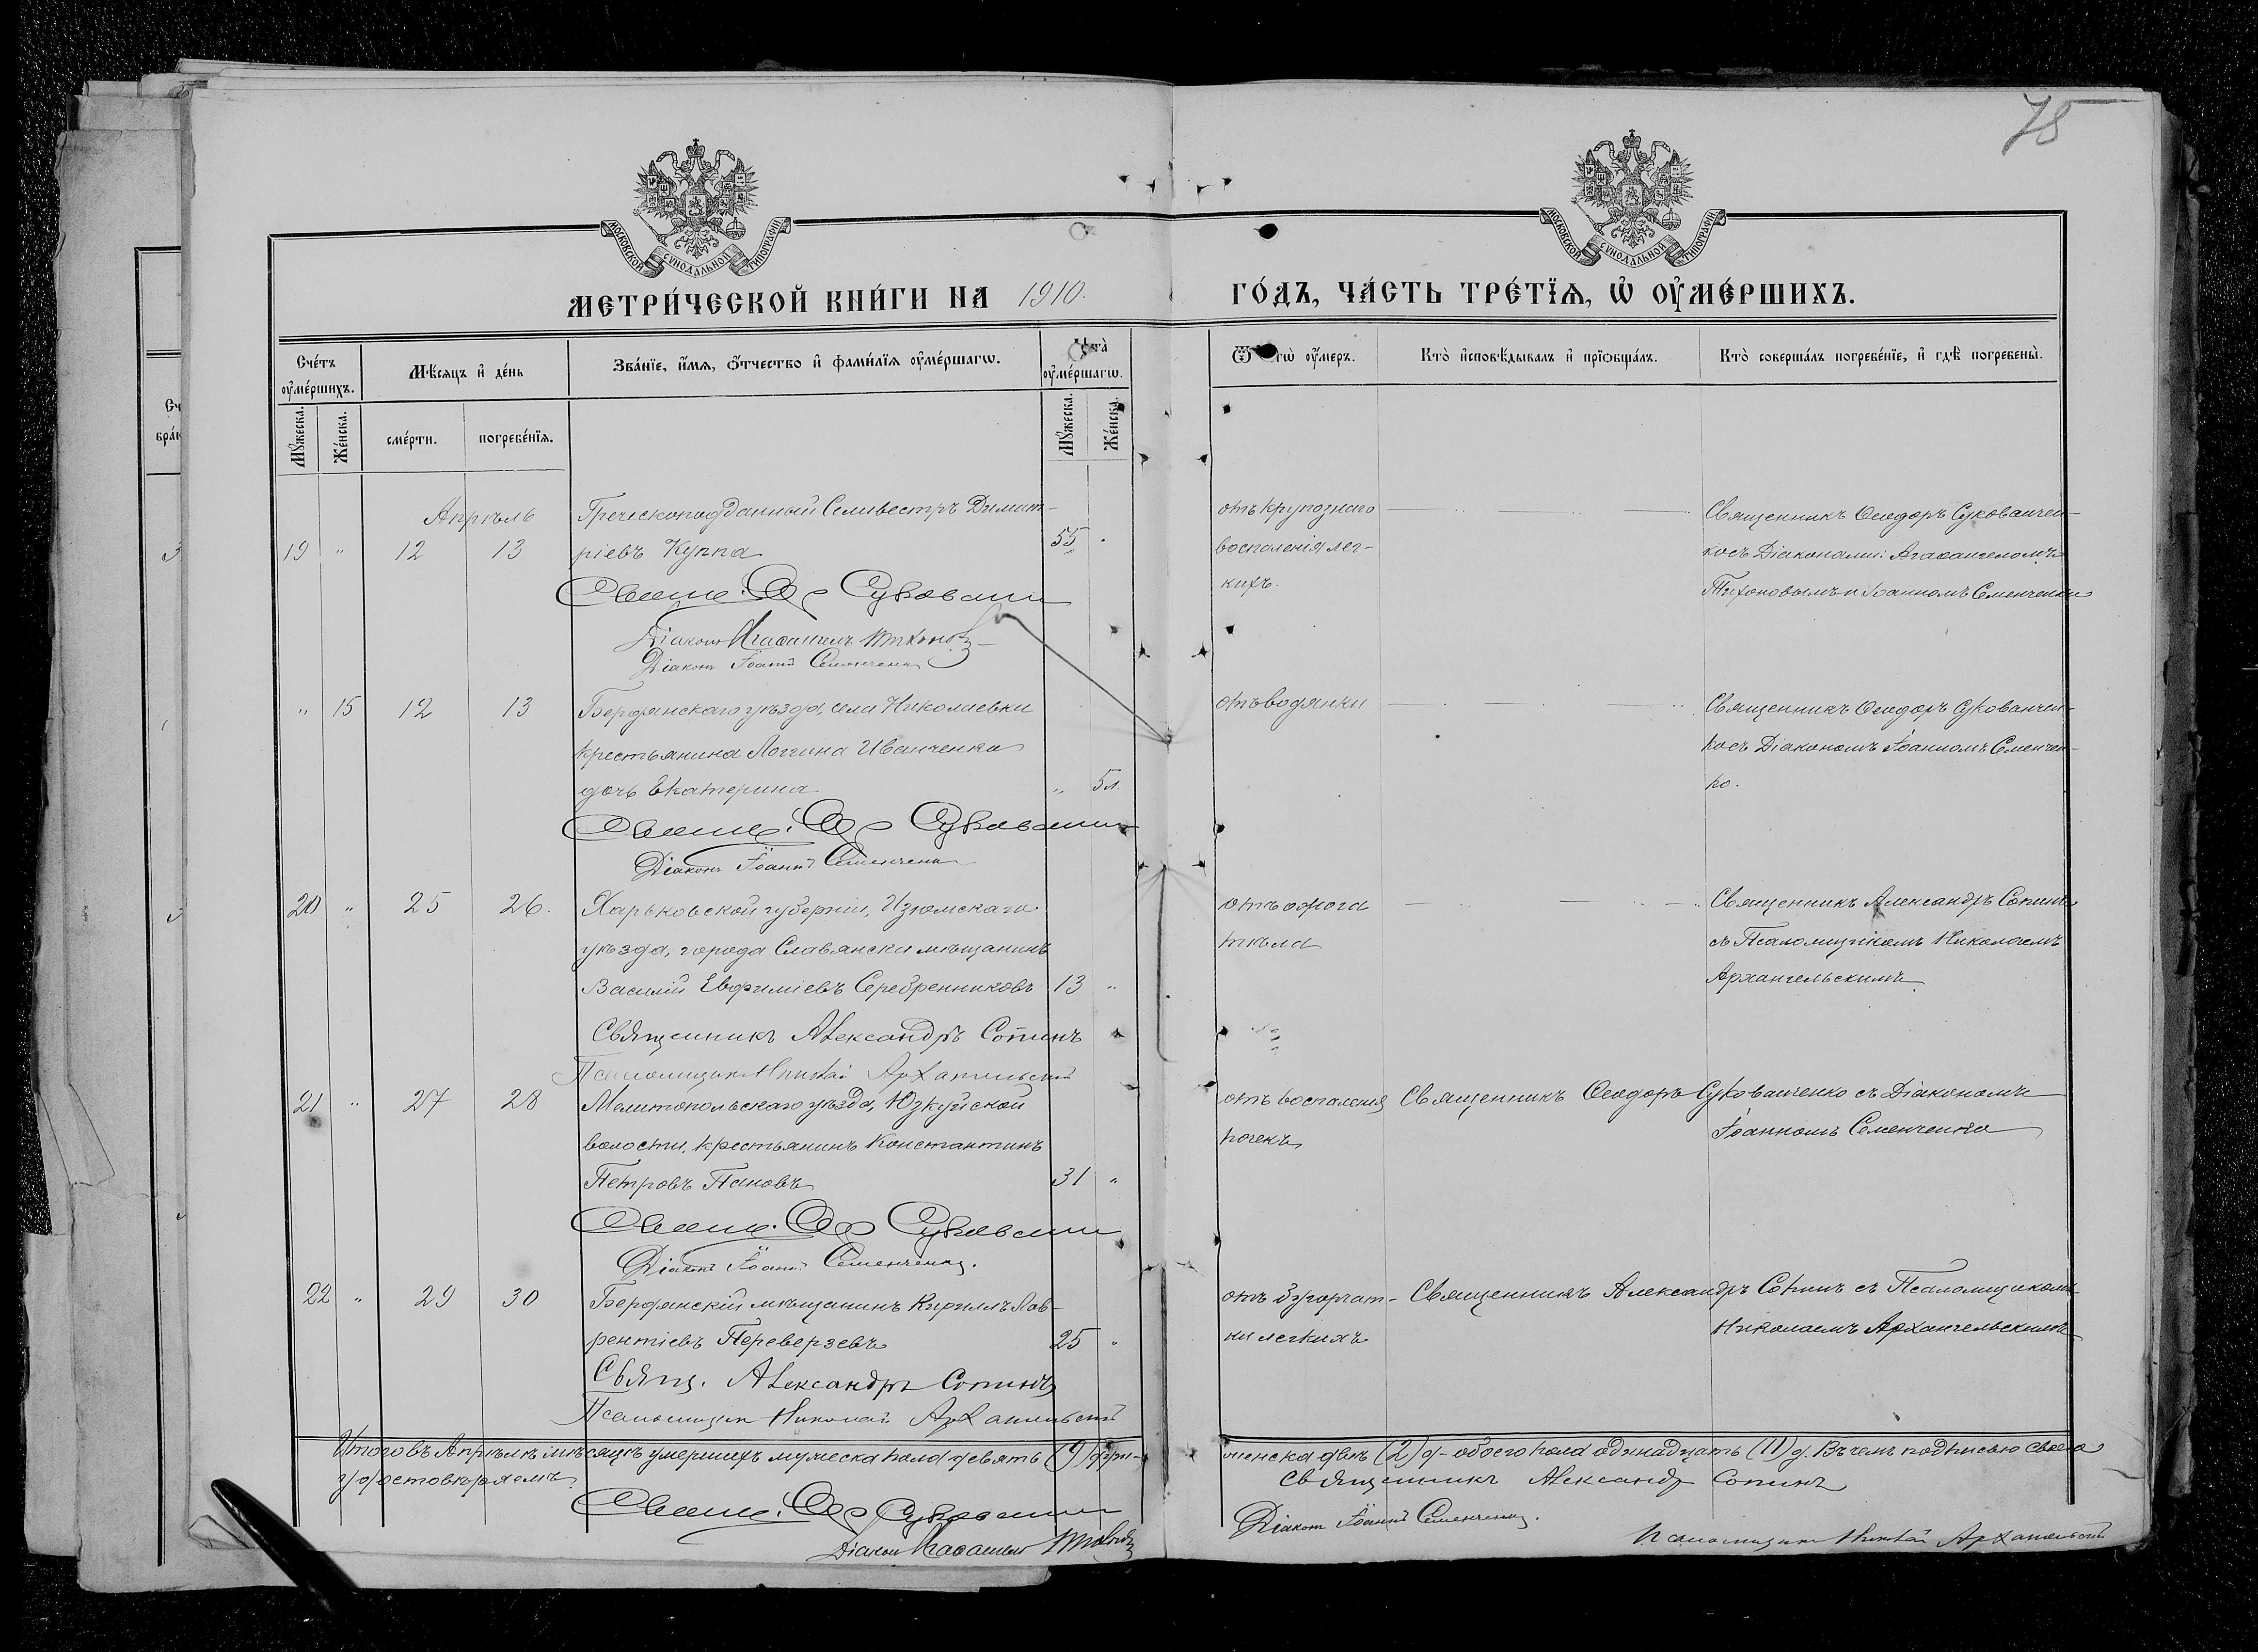 75
МОСКОВСКОЙ СѴНОДАЛЬНОЙ ТИПОГРАФІИ
МОСКОВСКОЙ СѴНОДАЛЬНОЙ ТИПОГРАФІИ
МЕТРИ́ЧЕСКОЙ КНИ́ГИ НА 1910.
ГО́ДЪ, ЧА́СТЬ ТРЕ́ТЇѦ, Ѡ҆ ОУ҆МЕ́РШИХЪ.
Сче́тъ оу҆ме́ршихъ.
Мѣ́сѧцъ и҆ де́нь
Зва́нїе, и҆́мѧ, ѻ҆́тчество и҆ фами́лїѧ оу҆ме́ршагѡ.
Лѣ́та̀ оу҆ме́ршагѡ.
Мꙋ́жеска.
Же́нска.
сме́рти.
погребе́нїѧ.
Мꙋ́жеска.
Же́нска.
Ѿ чегѡ̀ оу҆́меръ.
Кто̀ и҆сповѣ́дывалъ и҆ прїѻбща́лъ.
Кто̀ соверша́лъ погребе́нїе, и҆ гдѣ̀ погребены̀.
Апрѣль
19 " 12 13
Греческоподданный Селивестръ Димит-
ріевъ Куппа
55
Діаконъ Агаѳангелъ Тихоновъ
Діаконъ Іоаннъ Семенченко
отъ крупознаго
воспаленія лег-
кихъ.
Священникъ Ѳеодоръ Сукованчен-
ко съ Діаконами: Агаѳангеломъ
Тихоновымъ и Іоанномъ Семенченко
" 15 12 13
Бердянскаго уѣзда, села Николаевки
крестьянина Логгина Иванченко
дочь Екатерина
" 5 л.
Діаконъ Іоаннъ Семенченко
отъ водянки
Священникъ Ѳеодоръ Сукованчен-
ко съ Діакономъ Іоанномъ Семенчен-
ко.
20 " 25 26.
Харьковской губерніи, Изюмскаго
уѣзда, города Славянска мѣщанинъ
Василій Евфиміевъ Серебренниковъ
13 "
Священникъ Александръ Сопинъ
Псаломщикъ Николай Архангельскій
отъ ожога
тѣла
Священникъ Александръ Сопинъ
съ Псаломщикомъ Николаемъ
Архангельскимъ
21 " 27 28
Мелитопольскаго уѣзда, Юзкуйской
волости, крестьянинъ Константинъ
Петровъ Пановъ
31 "
Діаконъ Іоаннъ Семенченко.
отъ воспаленія
почекъ
Священникъ Ѳеодоръ Сукованченко съ Діакономъ
Іоанномъ Семенченко
22 " 29 30
Бердянскій мѣщанинъ Кириллъ Лав-
рентіевъ Переверзевъ
25 "
Свящ. Александръ Сопинъ
Псаломщикъ Николай Архангельскій
отъ бугорчат-
ки легкихъ
Священникъ Александръ Сопинъ съ Псаломщикомъ
Николаемъ Архангельскимъ
Итого въ Апрѣлѣ мѣсяцѣ умершихъ мужеска пола девять (9) душ-
женска двѣ (2) д- обоего пола одиннадцать (11) д. Въ чемъ подписью своею
удостовѣряемъ.
Священникъ Александр Сопинъ
Діаконъ Агаѳангелъ Тихоновъ
Діаконъ Іоаннъ Семенченко.
Псаломщикъ Николай Архангельскій